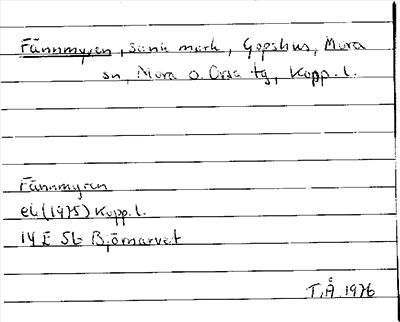 Fännmyren, sank mark, Gopshus, Mora
sn, Mora o. Orsa tg, Kopp. l.
Fännmyren
ek (1975) Kopp. l.
14 E Sb Björnarvet
T. Å. 1976